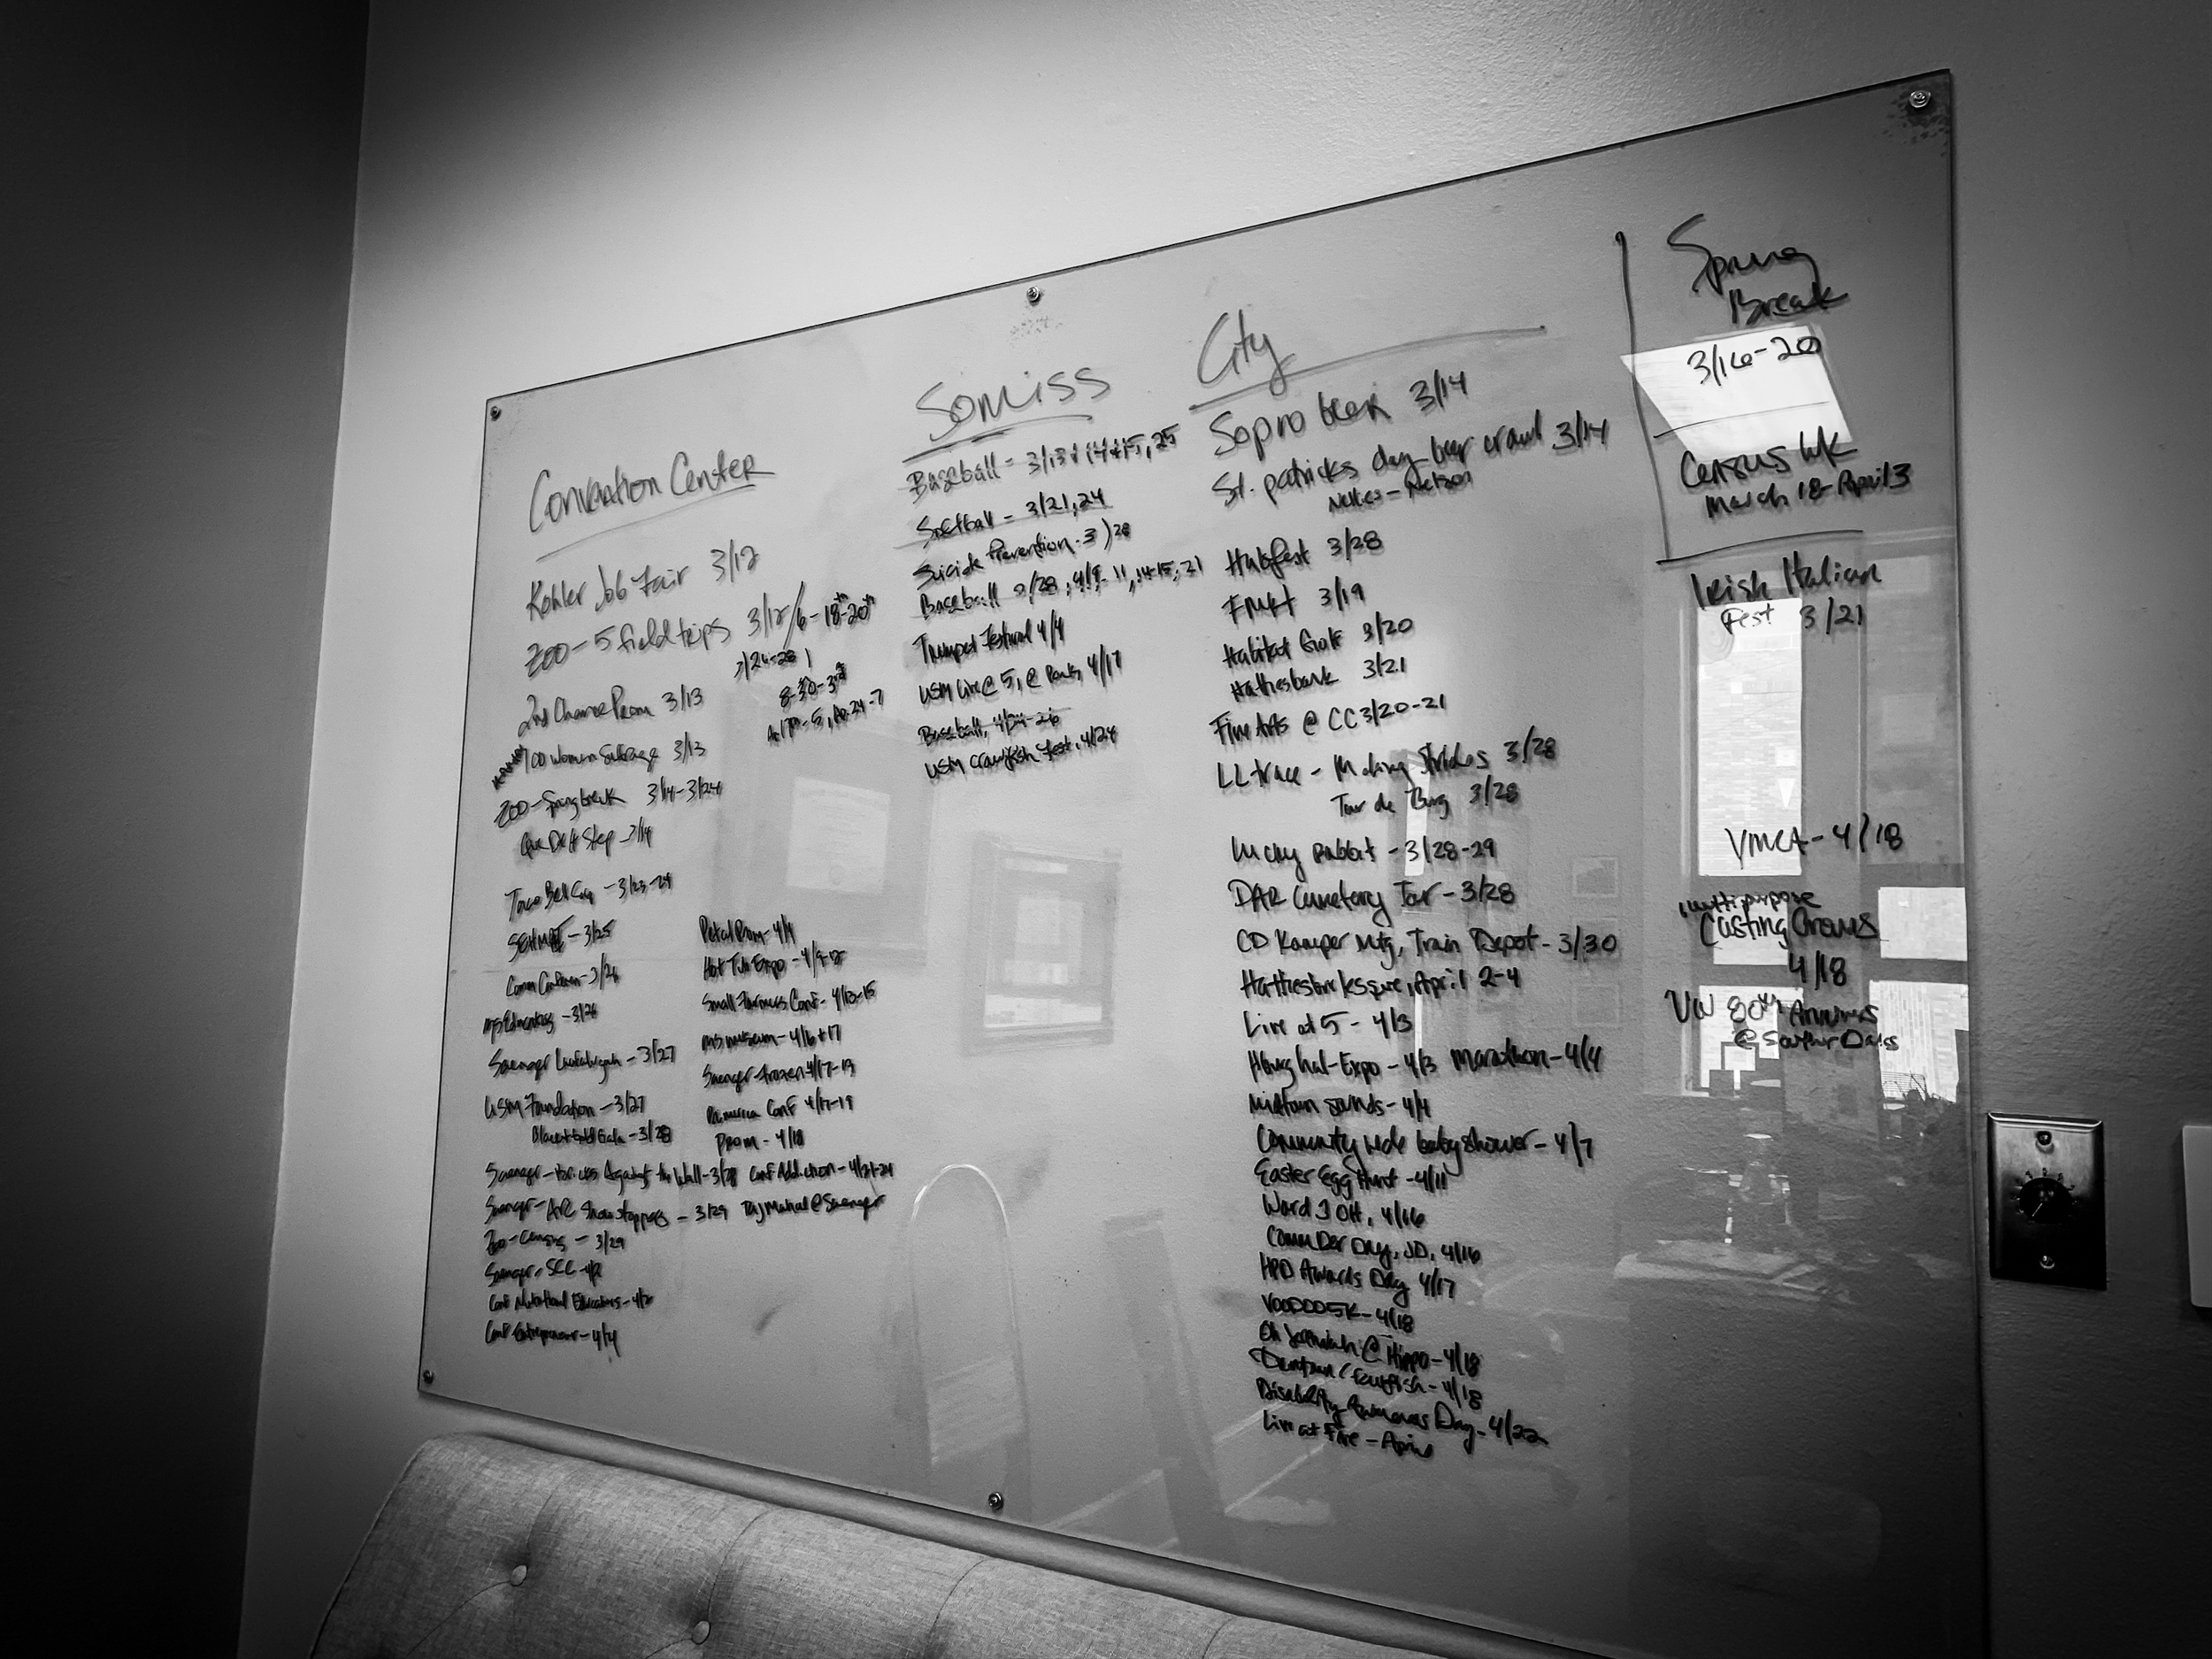 Convention Center
Kohler Job Fair 3/12
Zoo - 5 field trips 3/12/6 - 18-20th
3/24-28
8-30-3rd
2nd Chance Prom 3/13
100 Women Suffrage 3/13
Zoo - Spring break 3/14-3/24
Que Delt Step - 3/14
Taco Bell - 3/23-24
- 3/25
Comm - 3/26
- 3/26
Saenger - 3/27
USM Foundation - 3/27
Black & Gold Gala - 3/28
Saenger - Bricks Against the Wall - 3/28
Saenger - Arc Showstoppers - 3/29
Zoo - Census - 3/29
Saenger - SCC - 4/2
Conf Nutritional Educators - 4/2
Conf Entrepreneur - 4/4
Petal Prom - 4/4
Hot Tub Expo - 4/9-12
Small Farmers Conf - 4/13-15
MS museum - 4/16+17
Saenger - Frozen 4/17-19
Primerica Conf 4/17-19
Prom - 4/18
Conf Addiction - 4/21-24
Taj Mahal @ Saenger
Somiss
Baseball - 3/13 + 14+15, 25
Softball - 3/21, 24
Suicide Prevention - 3/28
Baseball 3/28, 4/9-11, 14-15, 21
Trumpet Festival 4/4
USM Live @ 5, @ Park, 4/17
Baseball, 4/24-26
USM Crawfish Fest, 4/24
City
Sopro beer 3/14
St. patricks day beer crawl 3/14
Nellies - Nelson
Hubfest 3/28
FMkt 3/19
Habitat Golf 3/20
Hattiesbark 3/21
Fine Arts @ CC 3/20-21
LL trace - Making Strides 3/28
Tour de Burg 3/28
Lucky Rabbit - 3/28-29
DAR Cemetery Tour - 3/28
CD Kamper Mtg, Train Depot - 3/30
April 2-4
Live at 5 - 4/3
Expo - 4/3 Marathon - 4/4
Midtown sounds - 4/4
Community wide baby shower - 4/7
Easter Egg Hunt - 4/11
Ward 3 OH, 4/16
Comm Dev Day, JD, 4/16
HPD Awards Day 4/17
VOODOO 5K - 4/18
Oh Jeremiah @ Hippo - 4/18
Downtown Crawfish - 4/18
Disability Awareness Day - 4/22
Live at Five - April
Spring
Break
3/16-20
Census Wk
March 18-April 3
Irish Italian
Fest 3/21
YMCA - 4/18
multipurpose
Casting Crowns
4/18
VW 80th Annivers
@ Southern Oaks